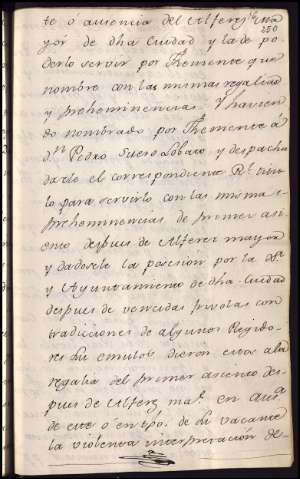 te o ausencia del Alferez ma
250
yor de dha Ciudad y la de po
derlo servir por Theniente que
nombre con las mismas regalias
y preheminencias. Y havien
do nombrado por Theniente a
dn Pedro Suero Lobaro y despacha
dasele el correspondiente Rl titu
lo para servirlo con las mismas
preheminencias de primer asi
ento despues de Alferez mayor
y dadosele la posesion por la
y Ayuntamiento de dha Ciudad
despues de vencidas frivolas con
tradiciones de algunos Regido
res sus emulos dieron estos a la
regalia del primer asiento des
pues de Alferez mar. en ausa
de este o en tpo. de su vacante
la violenta interpretacion de